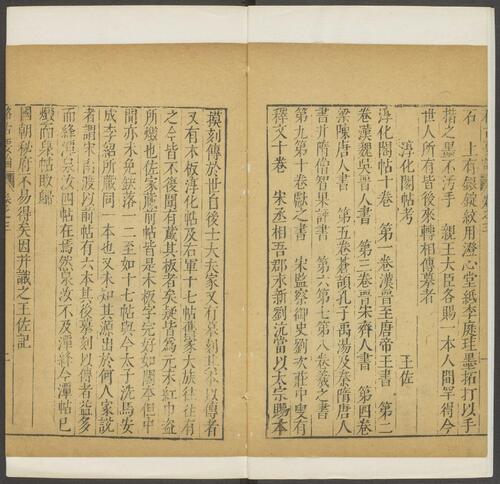 卷之三
石　上有銀錠紋用澄心堂紙李廷珪墨拓打以手
揩之墨不污手　親王大臣各賜一本人間罕得今
世人所有皆後來轉相傳摹者
淳化閣帖考　王佐
淳化閣帖十卷　第一卷漢晉至唐帝王書　第二
卷漢魏吳晉人書　第三卷晉宋齊人書　第四卷
梁陳唐人書　第五卷蒼頡孔子禹湯及秦隋唐人
書并隋僧智果評書　第六第七第八卷羲之書
第九第十卷獻之書　宋監察御史劉次莊中叟有
釋文十卷　宋丞相吾郡永新劉沆嘗以太宗賜本
摸刻傳於世自後士大夫家又有摹刻以傳者
又有木板淳化帖及右軍十七帖舊家大族往往有
之今皆不復聞有藏其板者矣疑皆爲元末紅巾盜
所燬也佐家舊前帖皆是木板字完好如閣本但中
間亦未免缺落一二至如十七帖與今太子洗馬安
成李紹所藏同一本也又未知其源出於何人家說
者謂宋南渡以前帖有六本其後摹刻以傳者益多
而絳潭泉汝四帖在焉然泉汝不及潭絳今潭帖已
燬而泉帖敗闕
國朝秘府不易得矣因并識之王佐記
格古要論　卷之三